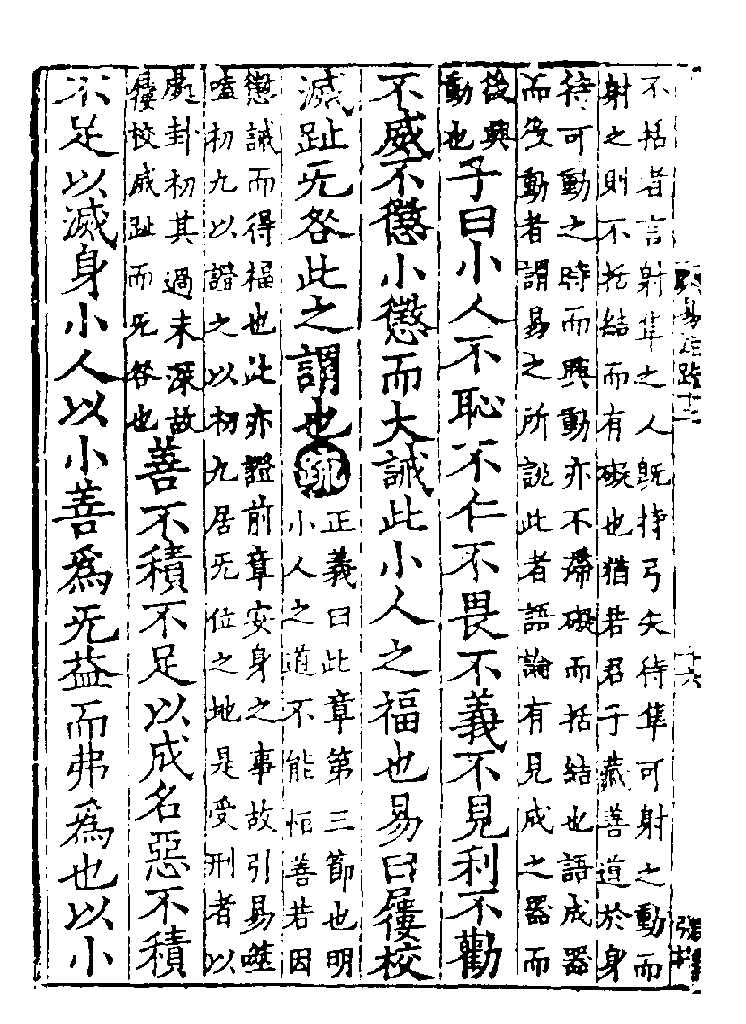 不括者言射隼之人既持弓矢待隼可射之動而
射之則不括結而有礙也猶若君子藏善道於身
待可動之時而興動亦不滯礙而括結也語成器
而後動者謂易之所說此者語論有見成之器而
後興
動也
子曰小人不恥不仁不畏不義不見利不勸
不威不懲小懲而大誡此小人之福也易曰屨校
滅趾无咎此之謂也疏
正義曰此章第三節也明
小人之道不能恒善若因
懲誡而得福也此亦證前章安身之事故引易噬
嗑初九以證之以初九居无位之地是受刑者以
處卦初其過未深故
屨校滅趾而无咎也
善不積不足以成名惡不積
不足以滅身小人以小善爲无益而弗爲也以小
易正疏十二
十六